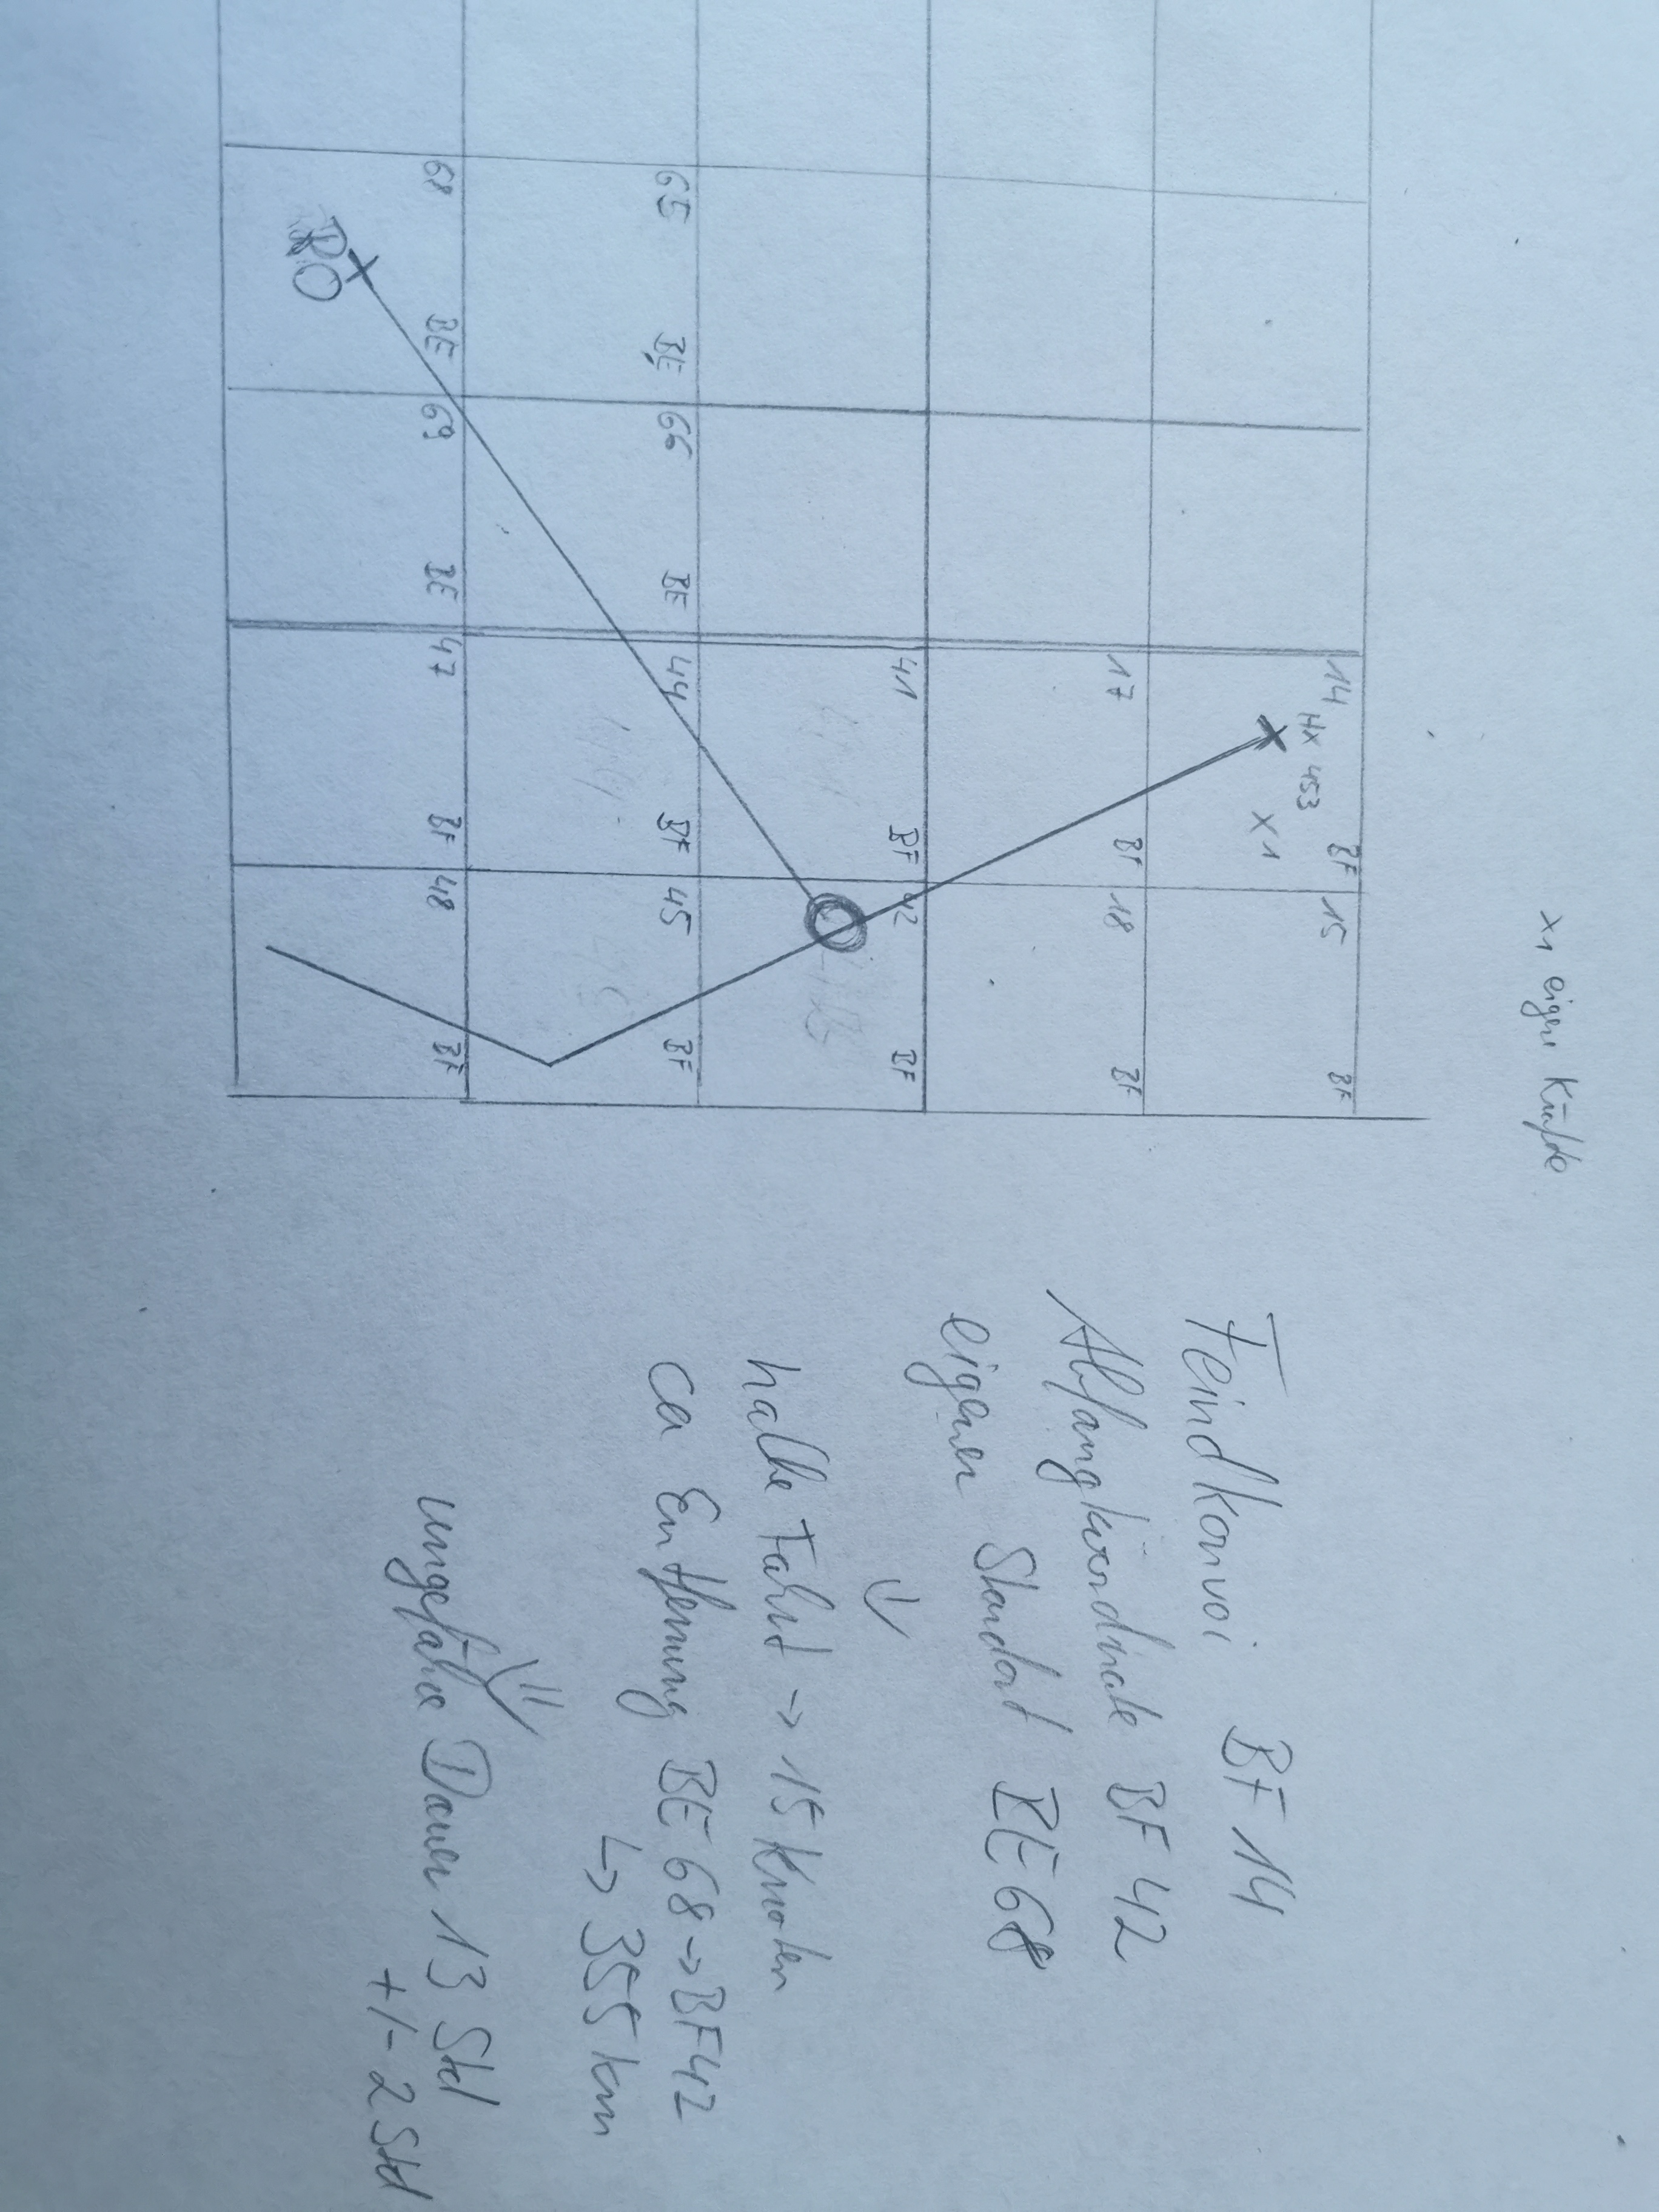 x1 eigene Kräfte
14 BF
HX 453
X1
15 BF
17 BF
18 BF
41 BF
42 BF
65 BE
66 BE
44 BF
45 BF
68 BE
69 BE
47 BF
48 BF
RO
Feindkonvoi BF 14
Abfangkoordinate BF 42
eigener Standort BE 68
halbe Fahrt -> 15 Knoten
ca Entfernung BE 68 -> BF42
↳ 355 km
ungefähre Dauer 13 Std
+/- 2 Std